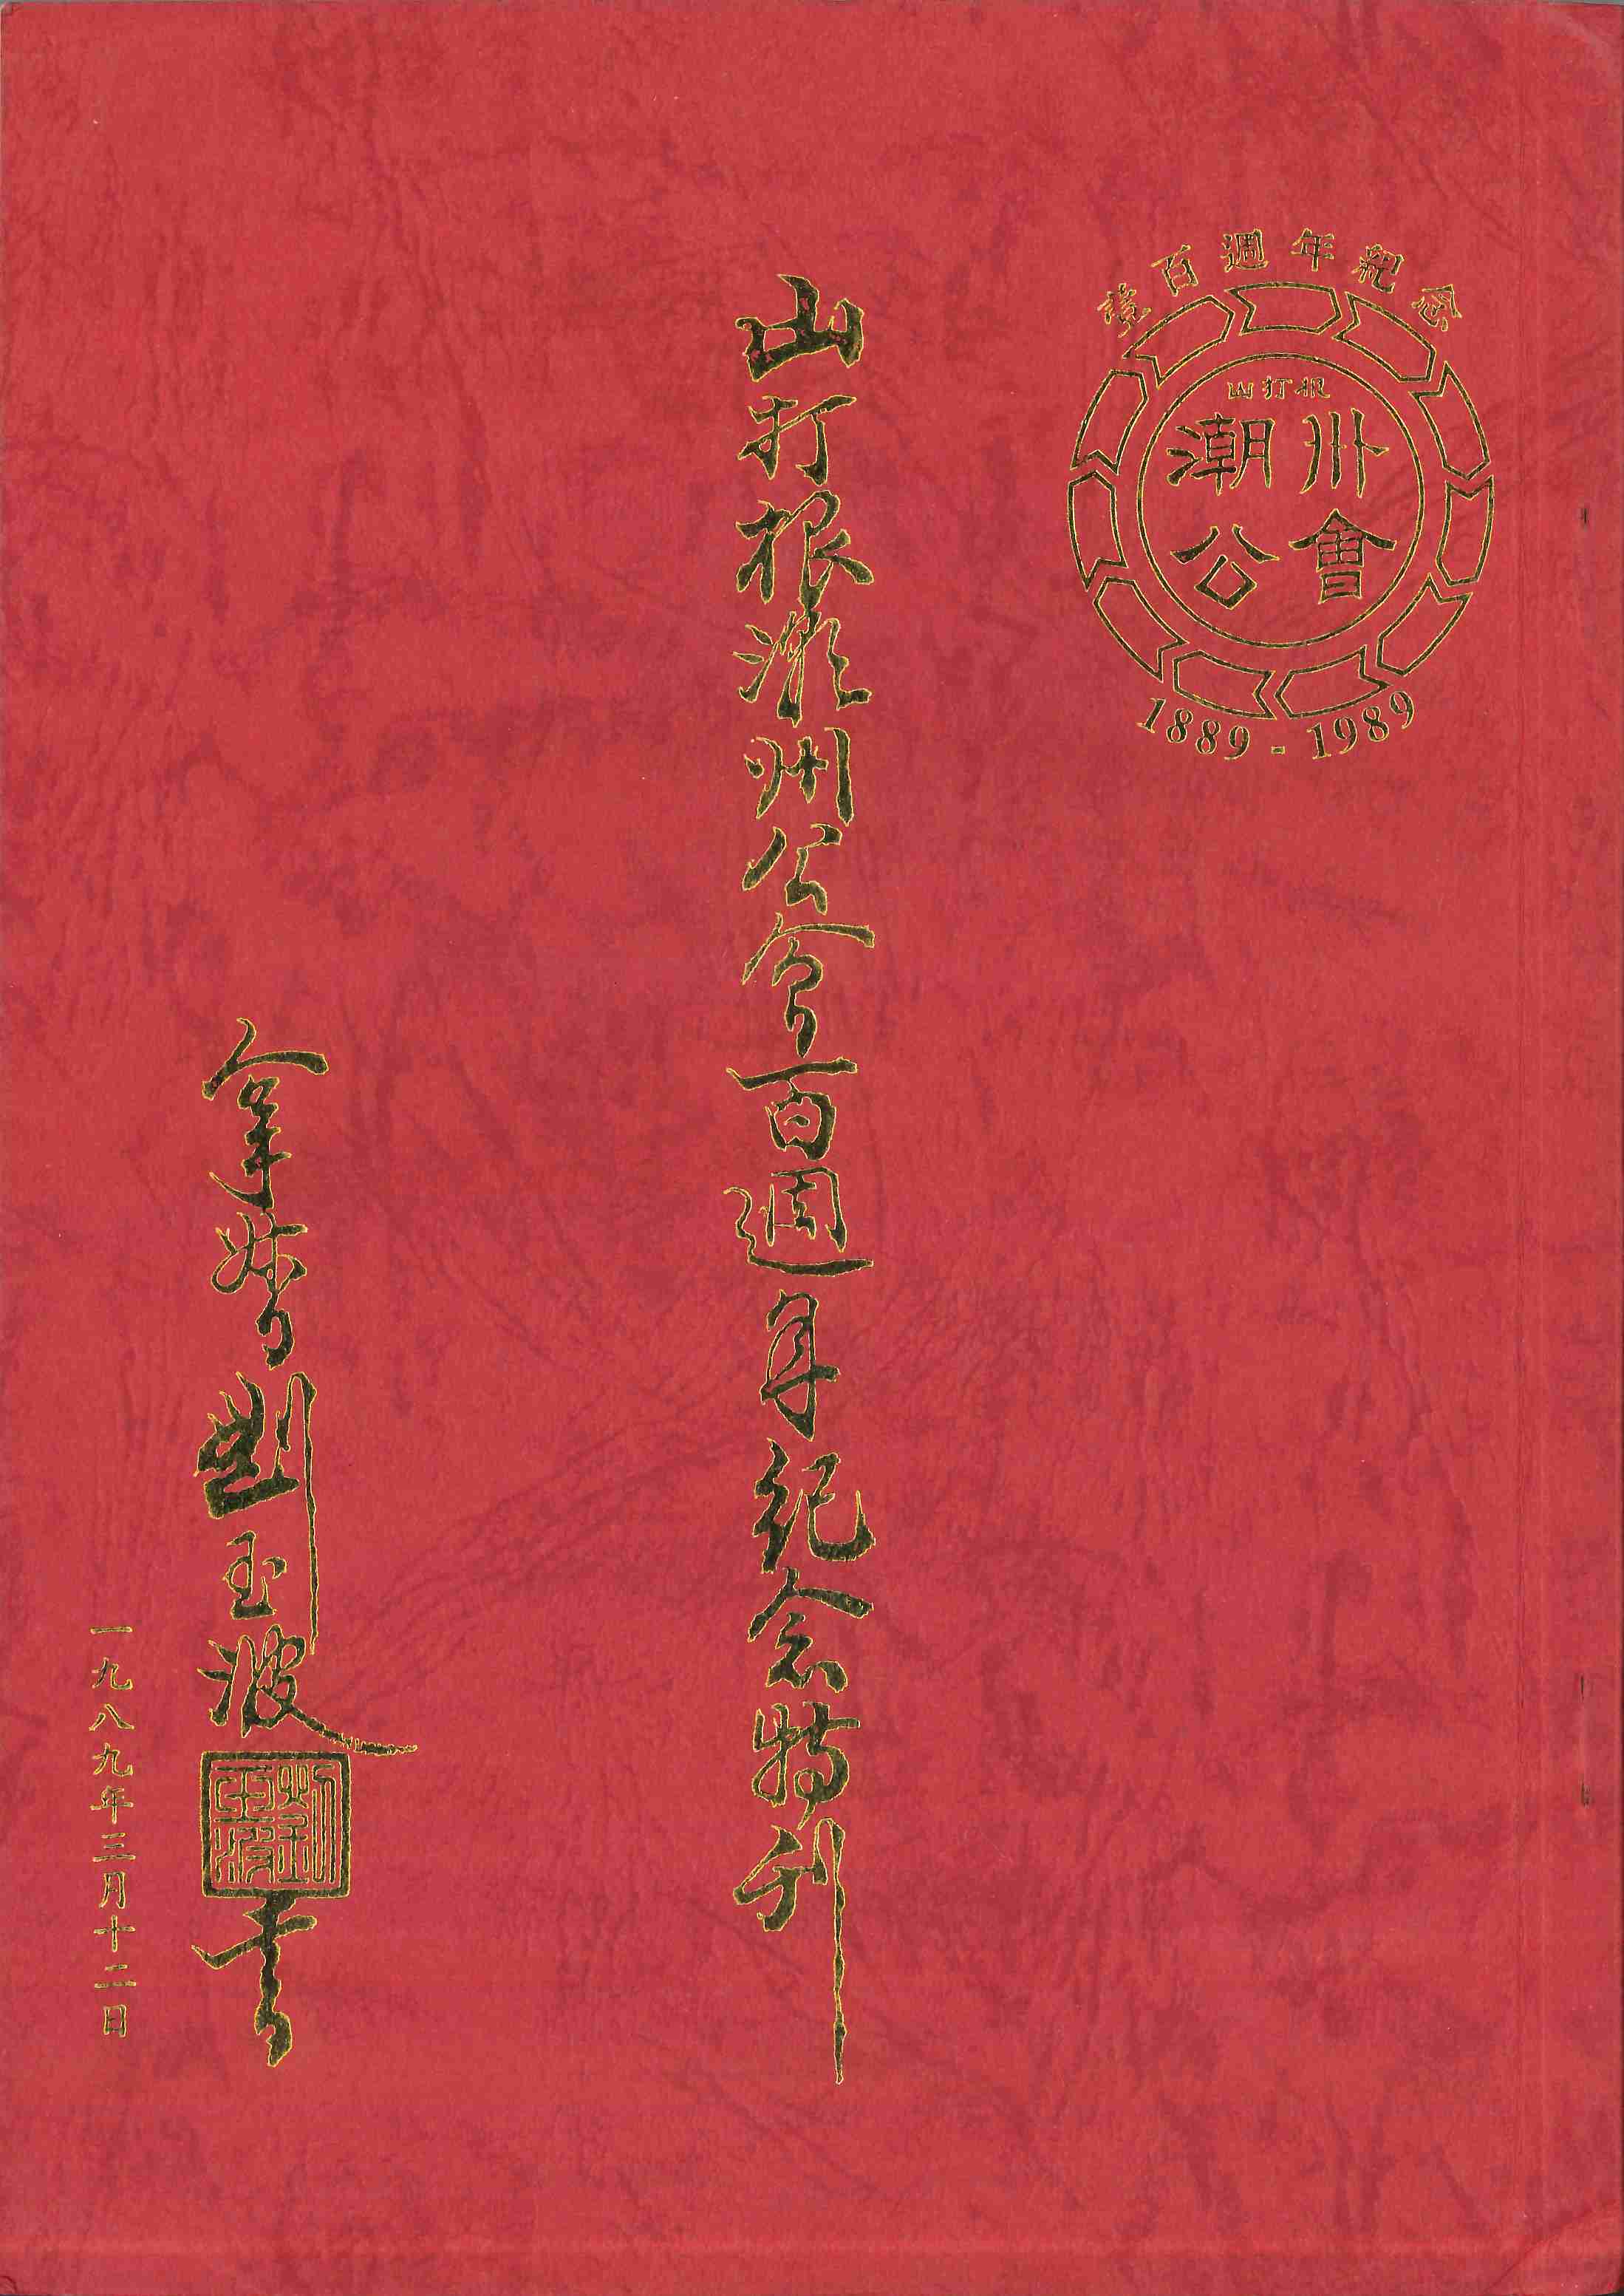 壹百週年紀念
山打根
潮州
公會
1889-1989
山打根潮州公会百週年纪念特刊
拿督劉玉波書
劉玉波
一九八九年三月十二日